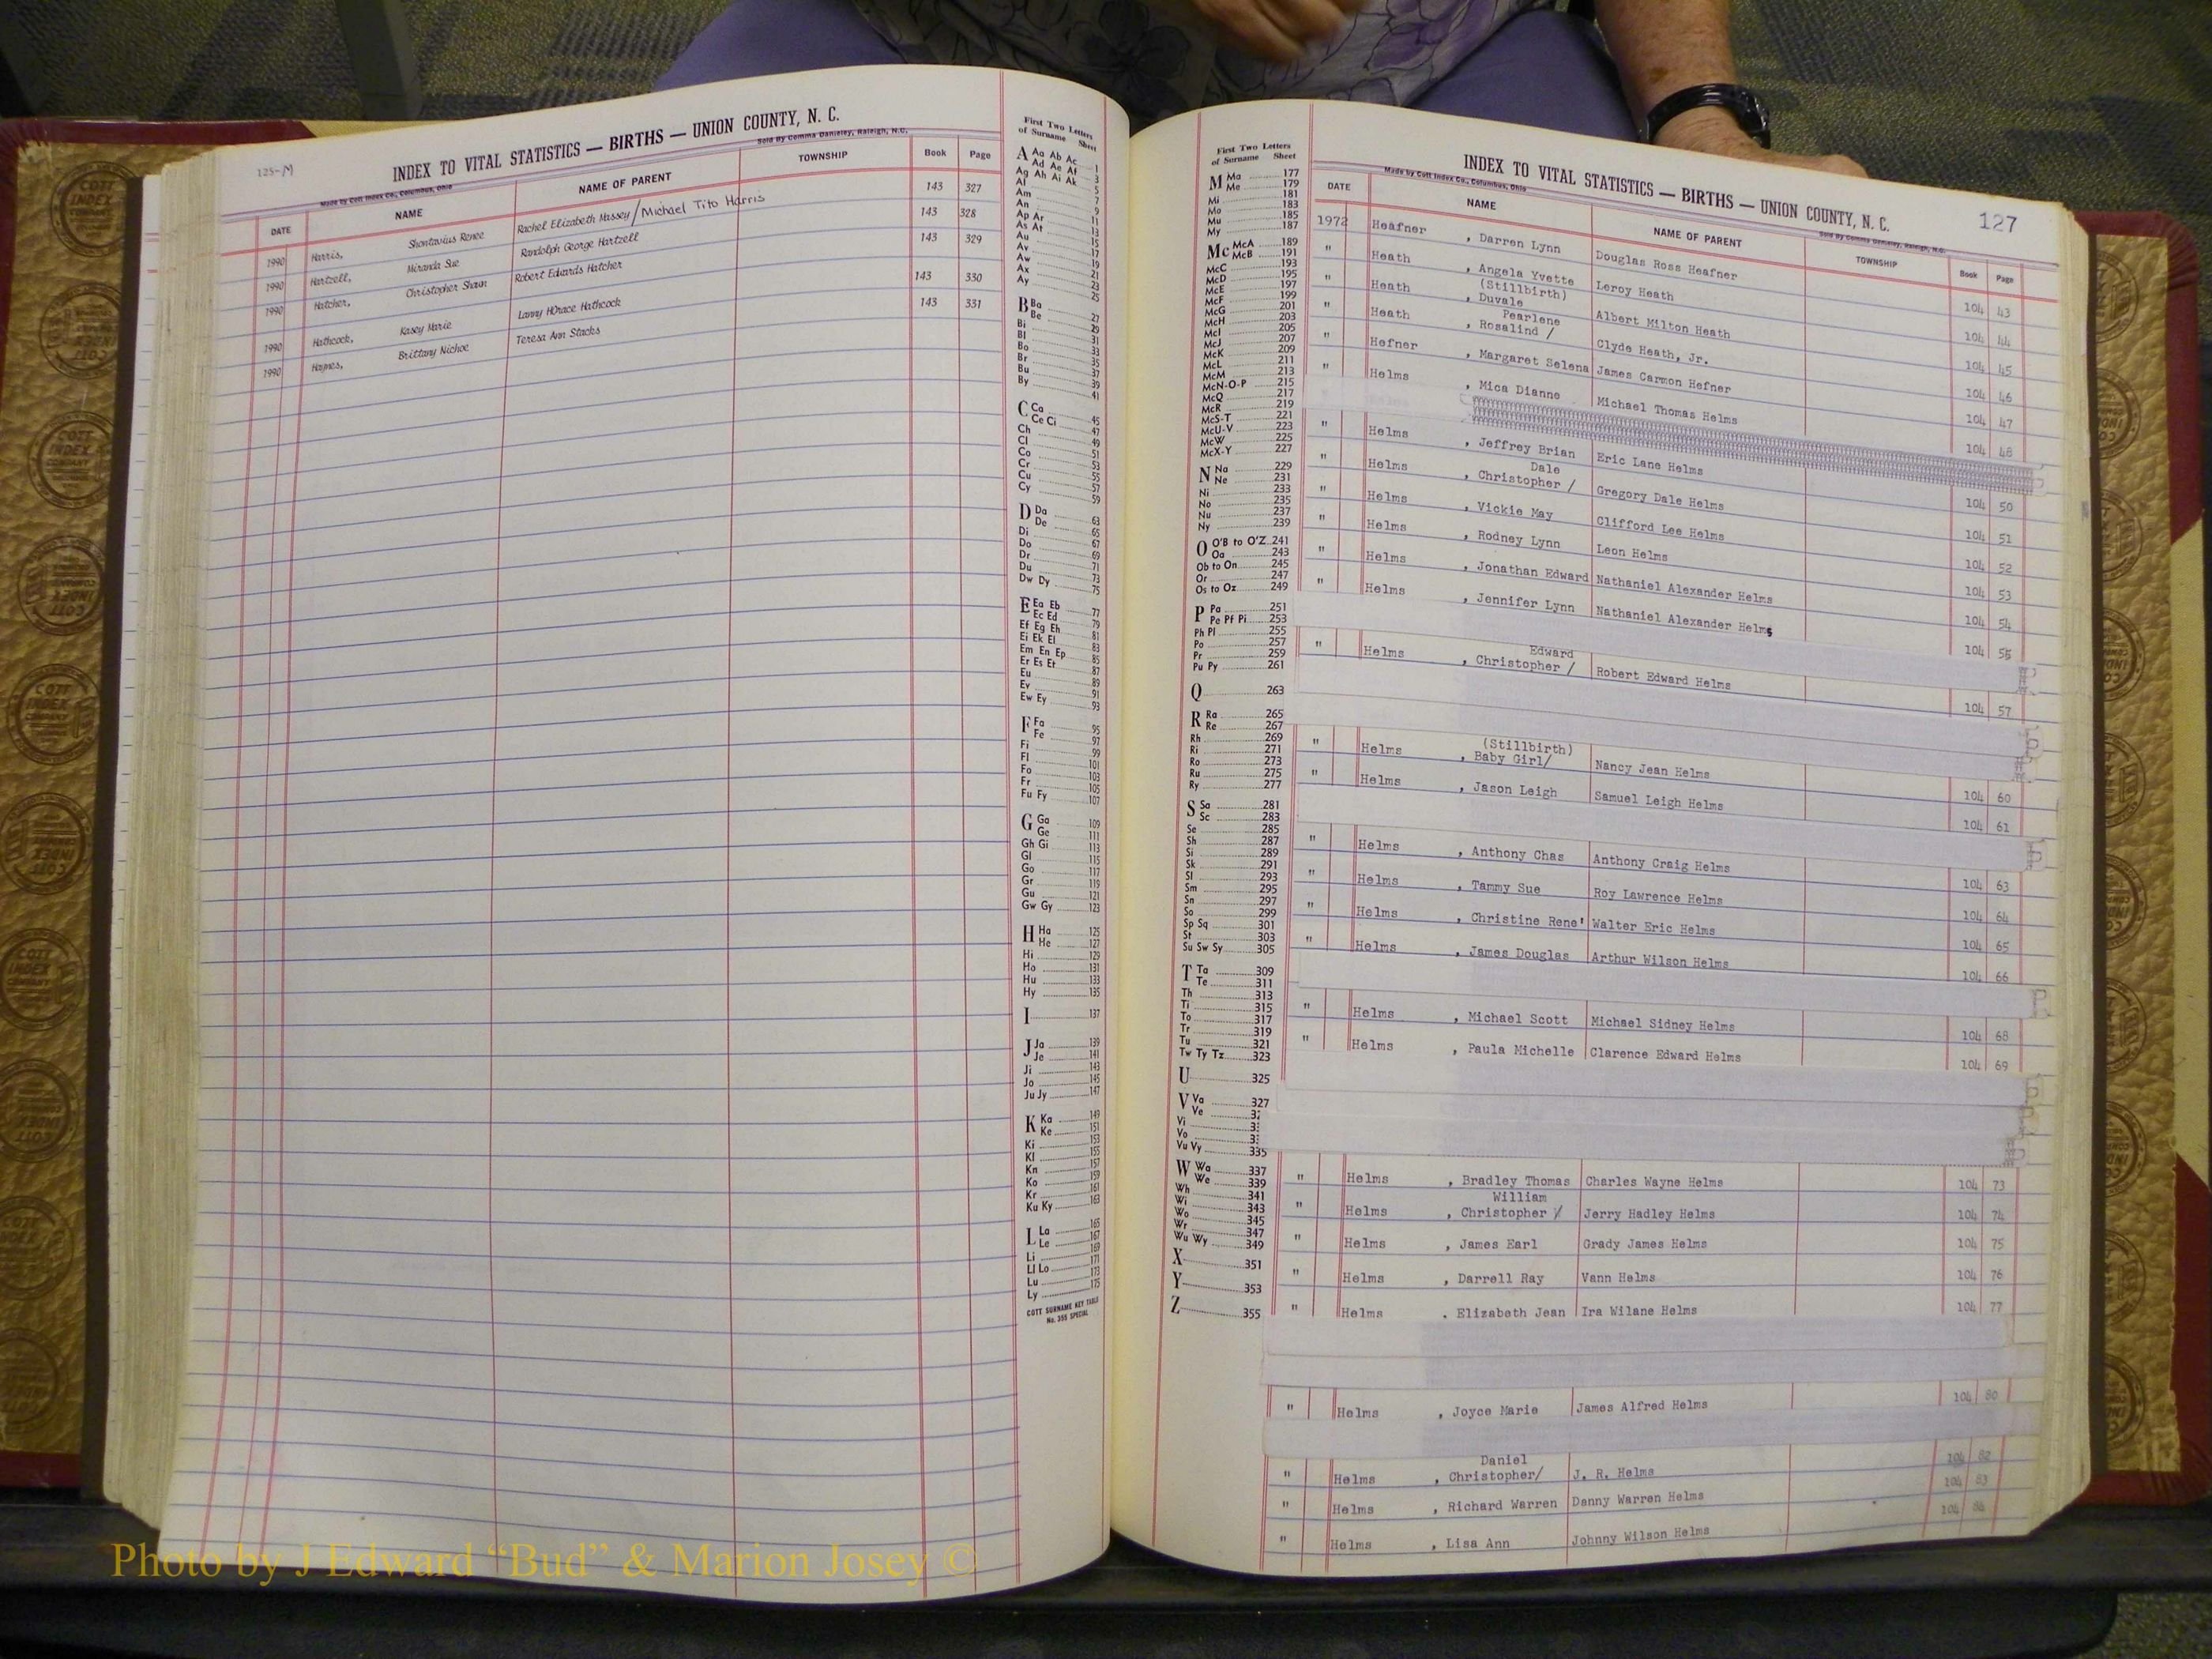 125-M
INDEX TO VITAL STATISTICS — BIRTHS — UNION COUNTY, N. C.
Made by Cott Index Co., Columbus, Ohio
Sold By Comma Danieley, Raleigh, N.C.
DATE NAME NAME OF PARENT TOWNSHIP Book Page
1990 Harris, Shontavius Renee Rachel Elizabeth Massey / Michael Tito Harris 143 327
1990 Hartzell, Miranda Sue Randolph George Hartzell 143 328
1990 Hatcher, Christopher Shawn Robert Edwards Hatcher 143 329
1990 Hathcock, Kasey Marie Lanny HOrace Hathcock 143 330
1990 Haynes, Brittany Nichoe Teresa Ann Stacks 143 331
First Two Letters
of Surname Sheet
A Aa Ab Ac 1
Ad Ae Af 3
Ag Ah Ai Ak 5
Al 7
Am 9
An 11
Ap Ar 13
As At 15
Au 17
Av 19
Aw 21
Ax 23
Ay 25
B Ba 27
Be 29
Bi 31
Bl 33
Bo 35
Br 37
Bu 39
By 41
C Ca 45
Ce Ci 47
Ch 49
Cl 51
Co 53
Cr 55
Cu 57
Cy 59
D Da 63
De 65
Di 67
Do 69
Dr 71
Du 73
Dw Dy 75
E Ea Eb 77
Ec Ed 79
Ef Eg Eh 81
Ei Ek El 83
Em En Ep 85
Er Es Et 87
Eu 89
Ev 91
Ew Ey 93
F Fa 95
Fe 97
Fi 99
Fl 101
Fo 103
Fr 105
Fu Fy 107
G Ga 109
Ge 111
Gh Gi 113
Gl 115
Go 117
Gr 119
Gu 121
Gw Gy 123
H Ha 125
He 127
Hi 129
Ho 131
Hu 133
Hy 135
I 137
J Ja 139
Je 141
Ji 143
Jo 145
Ju Jy 147
K Ka 149
Ke 151
Ki 153
Kl 155
Kn 157
Ko 159
Kr 161
Ku Ky 163
L La 165
Le 167
Li 169
Ll Lo 171
Lu 173
Ly 175
COTT SURNAME KEY TABLE
No. 355 SPECIAL
First Two Letters
of Surname Sheet
M Ma 177
Me 179
Mi 181
Mo 183
Mu 185
My 187
Mc McA 189
McB 191
McC 193
McD 195
McE 197
McF 199
McG 201
McH 203
McI 205
McJ 207
McK 209
McL 211
McM 213
McN-O-P 215
McQ 217
McR 219
McS-T 221
McU-V 223
McW 225
McX-Y 227
N Na 229
Ne 231
Ni 233
No 235
Nu 237
Ny 239
O O'B to O'Z 241
Oa 243
Ob to On 245
Or 247
Os to Oz 249
P Pa 251
Pe Pf Pi 253
Ph Pl 255
Po 257
Pr 259
Pu Py 261
Q 263
R Ra 265
Re 267
Rh 269
Ri 271
Ro 273
Ru 275
Ry 277
S Sa 281
Sc 283
Se 285
Sh 287
Si 289
Sk 291
Sl 293
Sm 295
Sn 297
So 299
Sp Sq 301
St 303
Su Sw Sy 305
T Ta 309
Te 311
Th 313
Ti 315
To 317
Tr 319
Tu 321
Tw Ty Tz 323
U 325
V Va 327
Ve
Vi
Vo
Vu Vy 335
W Wa 337
We 339
Wh 341
Wi 343
Wo 345
Wr 347
Wu Wy 349
X 351
Y 353
Z 355
INDEX TO VITAL STATISTICS — BIRTHS — UNION COUNTY, N. C.
127
Made by Cott Index Co., Columbus, Ohio
Sold By Comma Danieley, Raleigh, N.C.
DATE NAME NAME OF PARENT TOWNSHIP Book Page
1972 Heafner , Darren Lynn Douglas Ross Heafner 104 43
" Heath , Angela Yvette Leroy Heath 104 44
(Stillbirth)
" Heath , Duvale Albert Milton Heath 104 45
Pearlene
" Heath , Rosalind / Clyde Heath, Jr. 104 46
" Hefner , Margaret Selena James Carmon Hefner 104 47
" Helms , Mica Dianne Michael Thomas Helms 104 48
" Helms , Jeffrey Brian Eric Lane Helms 104 50
Dale
" Helms , Christopher / Gregory Dale Helms 104 51
" Helms , Vickie May Clifford Lee Helms 104 52
" Helms , Rodney Lynn Leon Helms 104 53
" Helms , Jonathan Edward Nathaniel Alexander Helms 104 54
" Helms , Jennifer Lynn Nathaniel Alexander Helms 104 55
Edward
" Helms , Christopher / Robert Edward Helms 104 57
(Stillbirth)
" Helms , Baby Girl/ Nancy Jean Helms 104 60
" Helms , Jason Leigh Samuel Leigh Helms 104 61
" Helms , Anthony Chas Anthony Craig Helms 104 63
" Helms , Tammy Sue Roy Lawrence Helms 104 64
" Helms , Christine Rene' Walter Eric Helms 104 65
" Helms , James Douglas Arthur Wilson Helms 104 66
" Helms , Michael Scott Michael Sidney Helms 104 68
" Helms , Paula Michelle Clarence Edward Helms 104 69
" Helms , Bradley Thomas Charles Wayne Helms 104 73
William
" Helms , Christopher / Jerry Hadley Helms 104 74
" Helms , James Earl Grady James Helms 104 75
" Helms , Darrell Ray Vann Helms 104 76
" Helms , Elizabeth Jean Ira Wilane Helms 104 77
" Helms , Joyce Marie James Alfred Helms 104 80
Daniel
" Helms , Christopher/ J. R. Helms 104 82
" Helms , Richard Warren Danny Warren Helms 104 83
" Helms , Lisa Ann Johnny Wilson Helms 104
Photo by J Edward “Bud” & Marion Josey ©